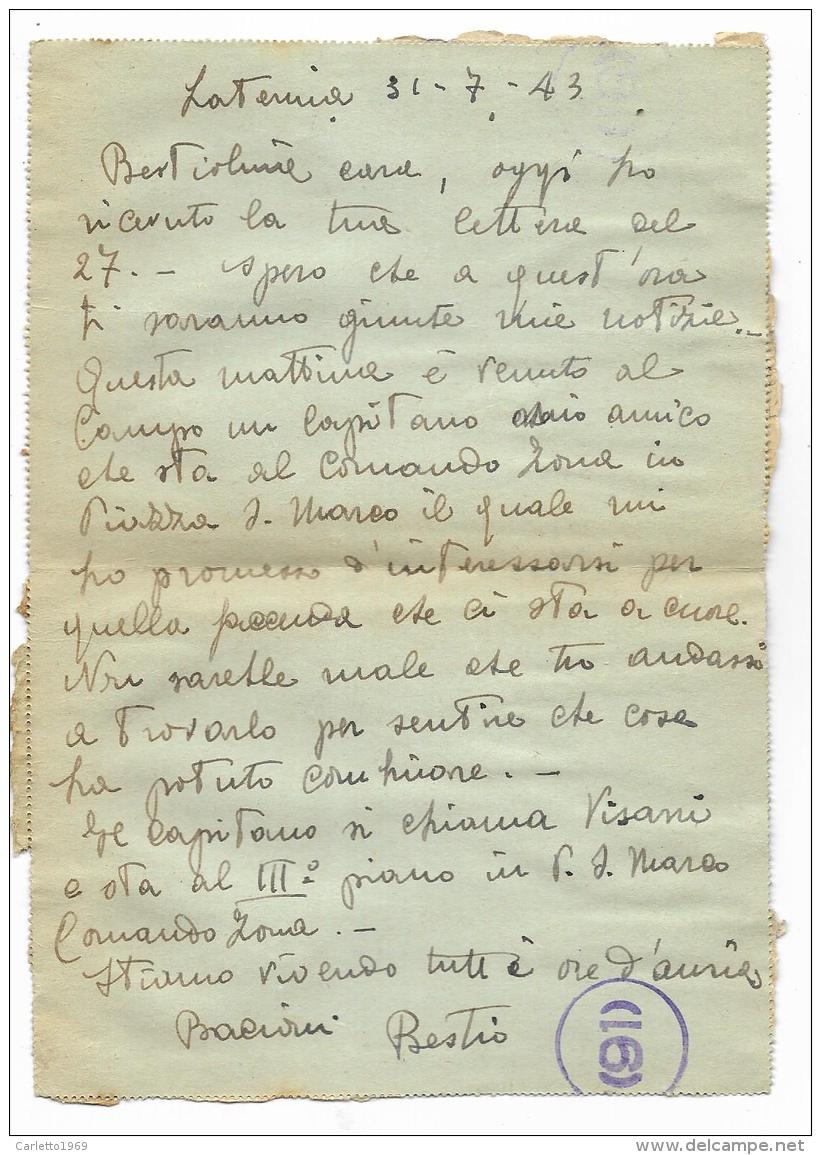 Laterina 31-7-43
Bestiolina cara, oggi ho
ricevuto la tua lettera del
27.- Spero che a quest'ora
ti saranno giunte mie notizie.-
Questa mattina è venuto al
Campo un Capitano mio amico
che sta al Comando Zona in
Piazza S. Marco il quale mi
ha promesso d'interessarsi per
quella faccenda che ci sta a cuore.
Non sarebbe male che tu andassi
a trovarlo per sentire che cosa
ha potuto combinare.-
Il Capitano si chiama Visani
e sta al III° piano in P. S. Marco
Comando Zona.-
Stiamo vivendo tutti ore d'ansia
Bacioni Bestio
(91)
Carletto1969
delcampe.net